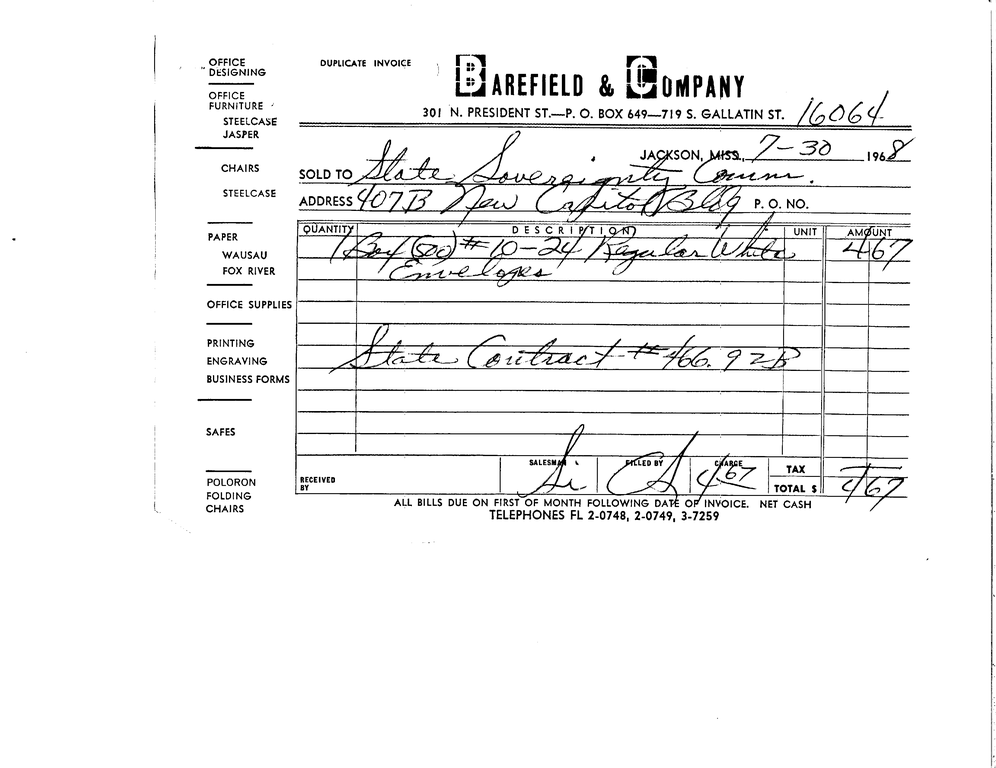 OFFICE
DESIGNING
OFFICE
FURNITURE
STEELCASE
JASPER
CHAIRS
STEELCASE
PAPER
WAUSAU
FOX RIVER
OFFICE SUPPLIES
PRINTING
ENGRAVING
BUSINESS FORMS
SAFES
POLORON
FOLDING
CHAIRS
DUPLICATE INVOICE
BAREFIELD & COMPANY
301 N. PRESIDENT ST.—P. O. BOX 649—719 S. GALLATIN ST. 16064
JACKSON, MISS., 7-30 1968
SOLD TO State Sovereignty Comm.
ADDRESS 407B New Capitol Bldg P. O. NO.
QUANTITY DESCRIPTION UNIT AMOUNT
1 Box (500) # 10-24 Regular White 4 67
Envelopes
State Contract # 466.92B
SALESMAN FILLED BY CHARGE TAX
RECEIVED BY 4 67 TOTAL $ 4 67
ALL BILLS DUE ON FIRST OF MONTH FOLLOWING DATE OF INVOICE. NET CASH
TELEPHONES FL 2-0748, 2-0749, 3-7259